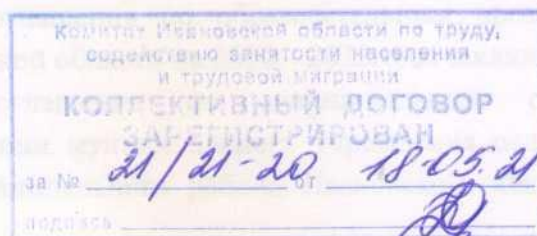 Комитет Ивановской области по труду,
содействию занятости населения
и трудовой миграции
КОЛЛЕКТИВНЫЙ ДОГОВОР
ЗАРЕГИСТРИРОВАН
за № 21/21-20 от 18.05.21
подпись